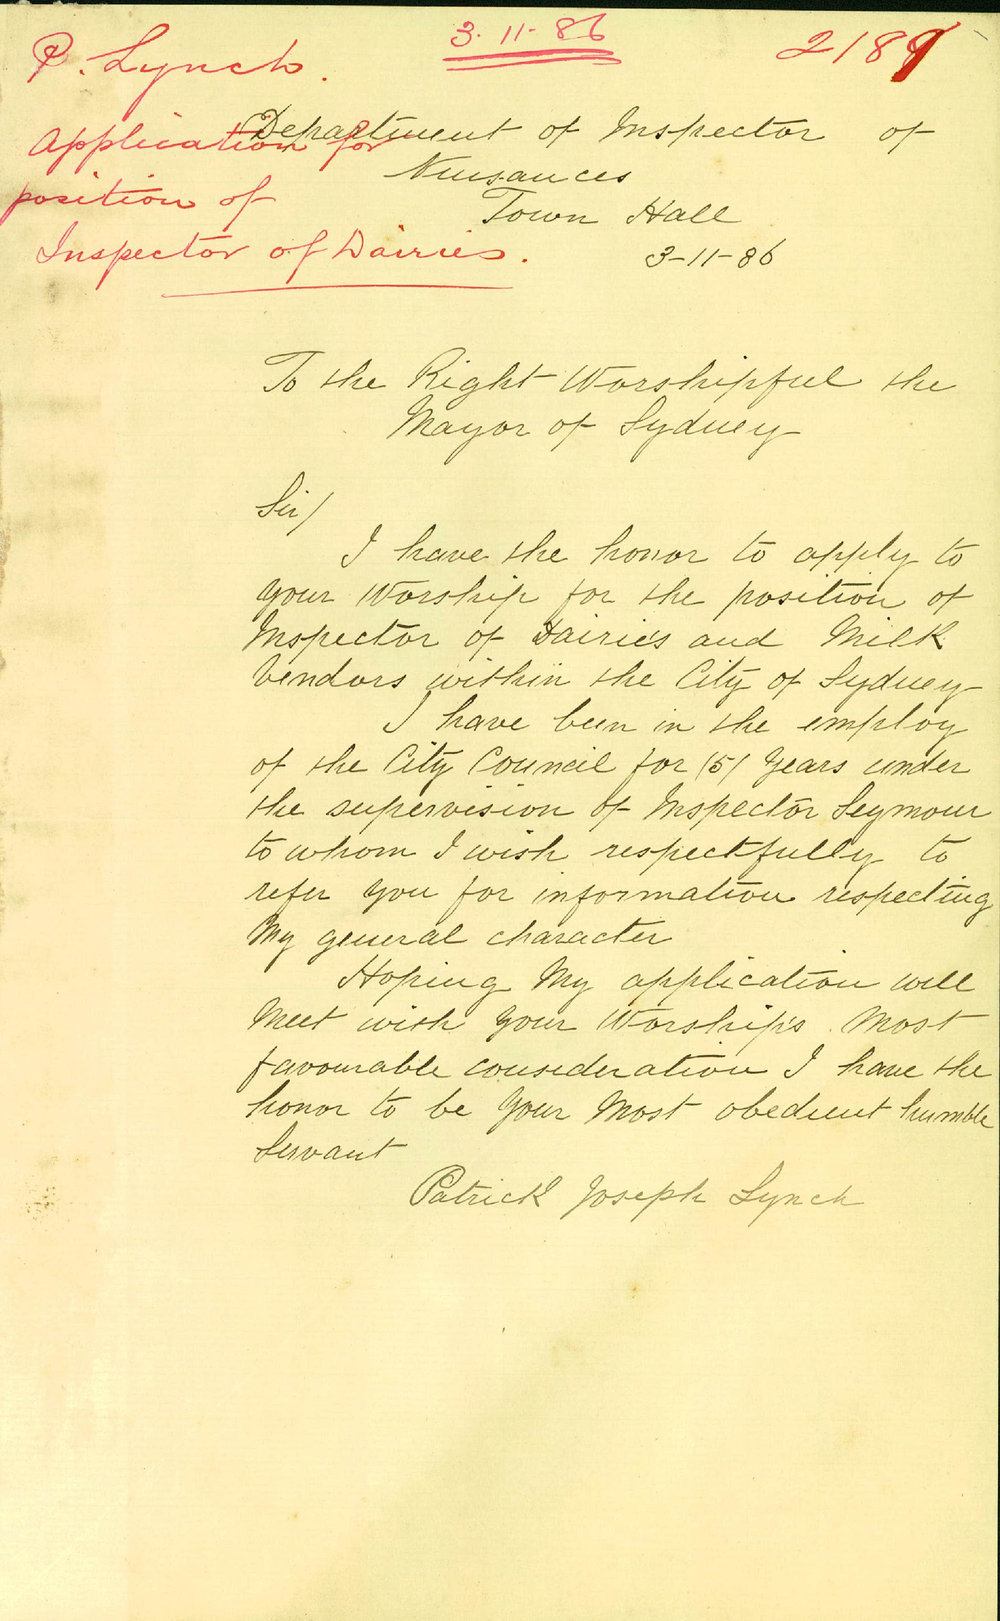 3. 11. 86
P. Lynch.
Application for
position of
Inspector of Dairies.
Department of Inspector of
Nuisances
Town Hall
3-11-86
To the Right Worshipful the
Mayor of Sydney
Sir/
I have the honor to apply to
your Worship for the position of
Inspector of Dairies and Milk
Vendors within the City of Sydney
I have been in the employ
of the City Council for (5) years under
the supervision of Inspector Seymour
to whom I wish respectfully to
refer you for information respecting
My general character
Hoping My application will
Meet with your Worship's Most
favourable consideration I have the
honor to be your Most obedient humble
Servant
Patrick Joseph Lynch